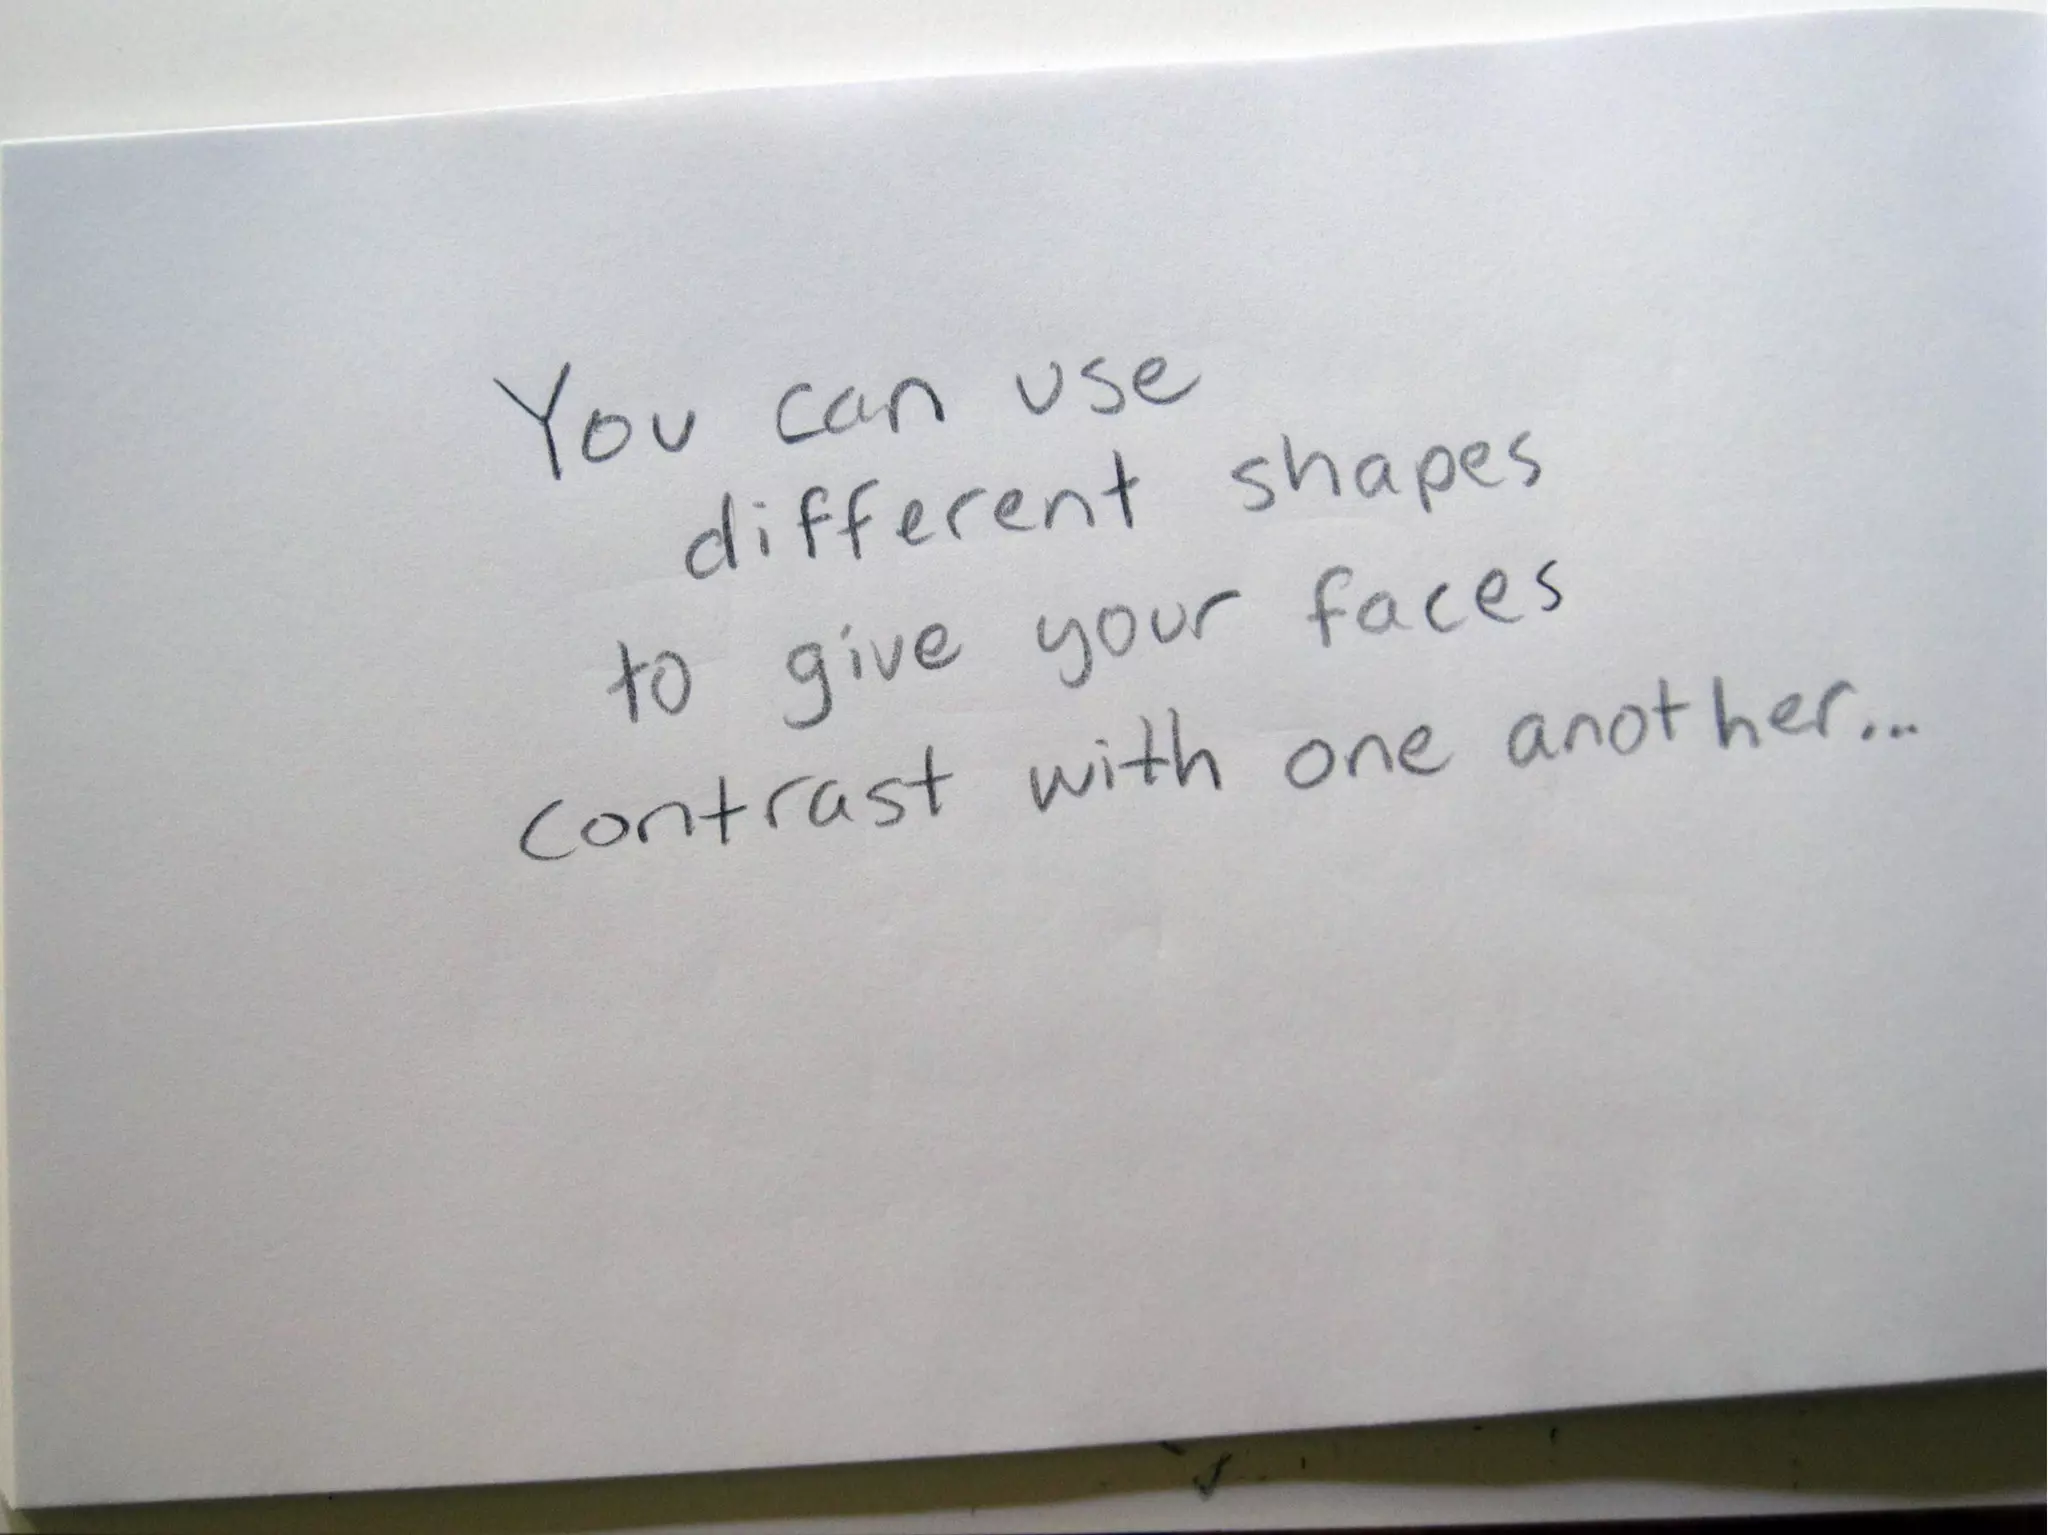 You can use
different shapes
to give your faces
contrast with one another...